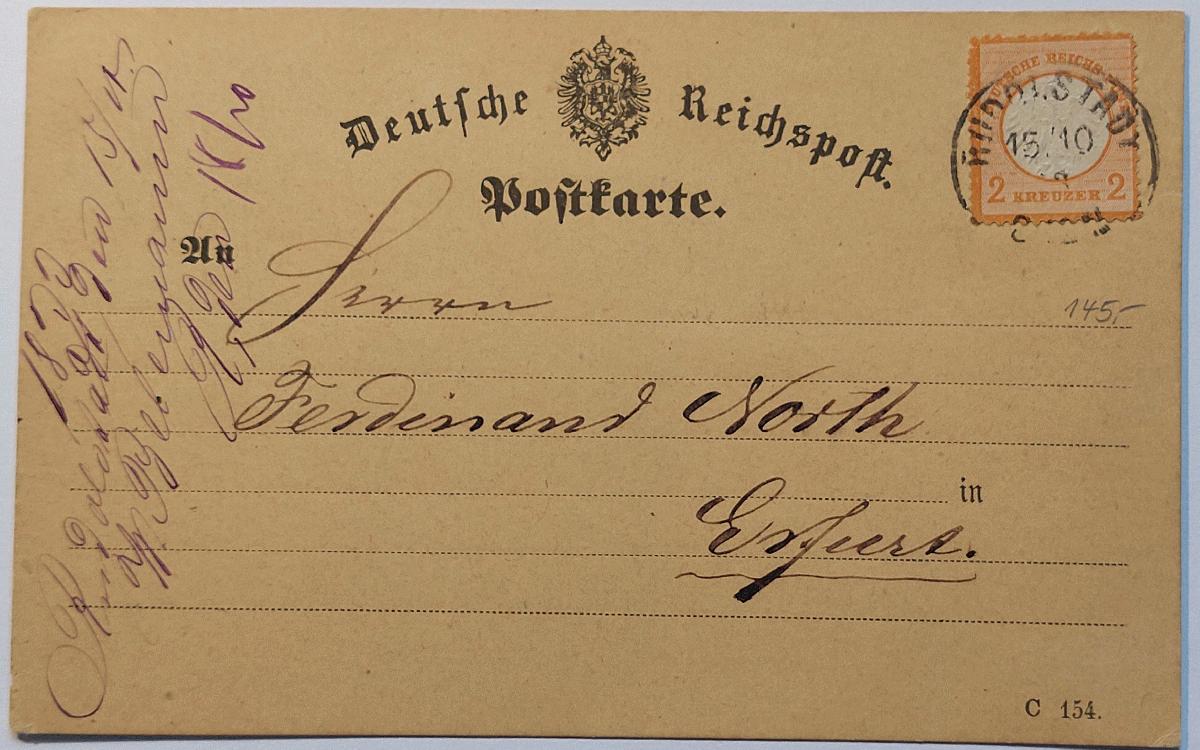 Deutsche Reichspost.
Postkarte.
DEUTSCHE REICHS-
2 KREUZER 2
RUDOLSTADT
15/10
An
Herrn
145,-
Ferdinand North
in
Erfurt.
C 154.
1873
Rudolstadt den 15/10.
den 18/10